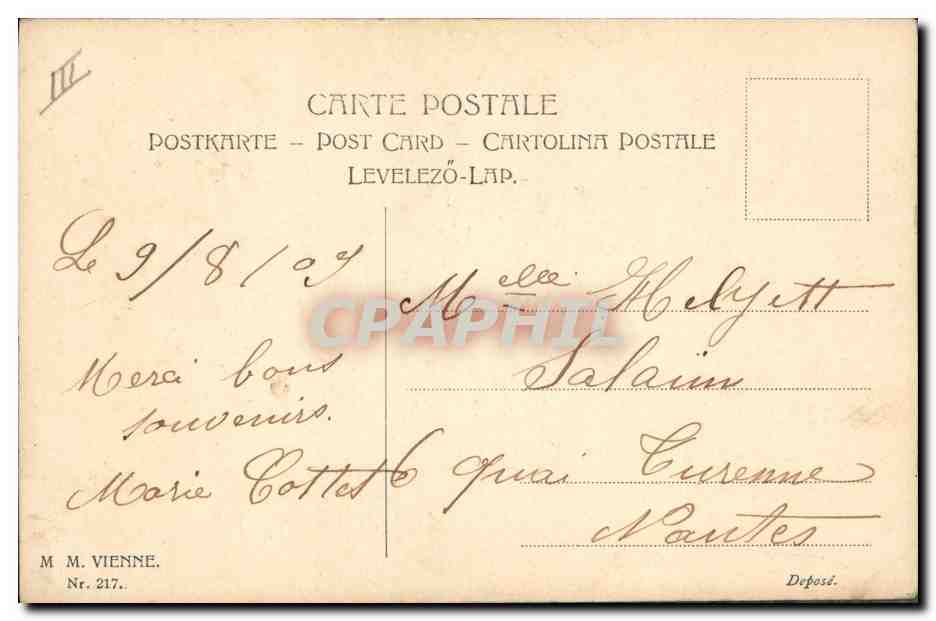 III
CARTE POSTALE
POSTKARTE – POST CARD – CARTOLINA POSTALE
LEVELEZŐ-LAP.
Le 9/8/07
Merci bons
souvenirs.
Marie Cottet
Melle Melyett
Salaün
6 quai Turenne
Nantes
CPAPHIL
M. M. VIENNE.
Nr. 217.
Deposé.